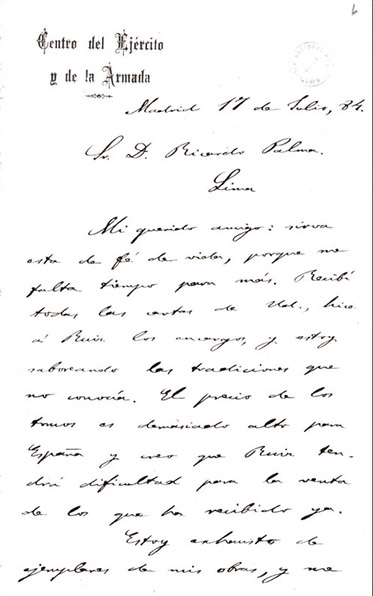 6
Centro del Ejército
y de la Armada
Madrid 17 de Julio, 84.
Sr. D. Ricardo Palma.
Lima
Mi querido amigo: sirva
esta de fé de vida, porque me
falta tiempo para más. Recibí
todas las cartas de Ud., hice
á Ruiz los encargos, y estoy
saboreando las tradiciones que
no conocía. El precio de los
tomos es demasiado alto para
España y creo que Ruiz ten-
drá dificultad para la venta
de los que ha recibido ya.
Estoy exhausto de
ejemplares de mis obras, y me